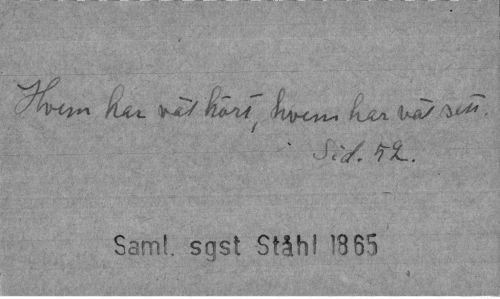 Hvem har vät hört, hvem har vät sett.
Sid. 52.
Saml. sgst Ståhl 1865